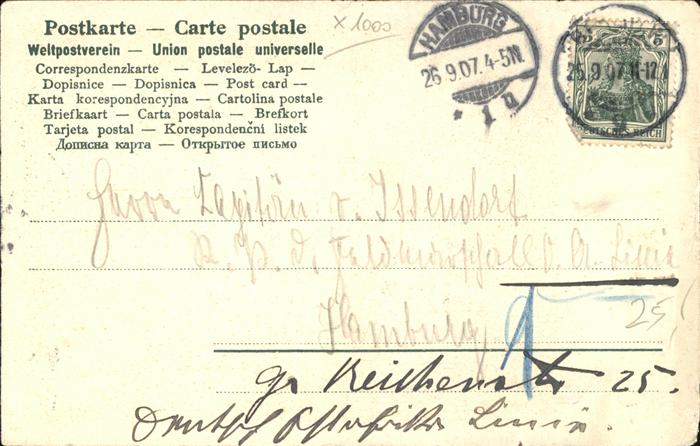 Postkarte — Carte postale
Weltpostverein — Union postale universelle
Correspondenzkarte — Levelező-Lap —
Dopisnice — Dopisnica — Post card —
Karta korespondencyjna — Cartolina postale
Briefkaart — Carta postala — Brefkort
Tarjeta postal — Korespondenční listek
Дописна карта — Открытое письмо
x 1000
HAMBURG
26.9.07.4-5N.
* 1 q
5 5
25.9.07.11-12
DEUTSCHES REICH
Herrn Capitän v. Issendorf
R. P. D. Feldmarschall D. O. A. Linie
Hamburg
25
gr Reichenstr 25.
Deutsch Ostafrika Linie.